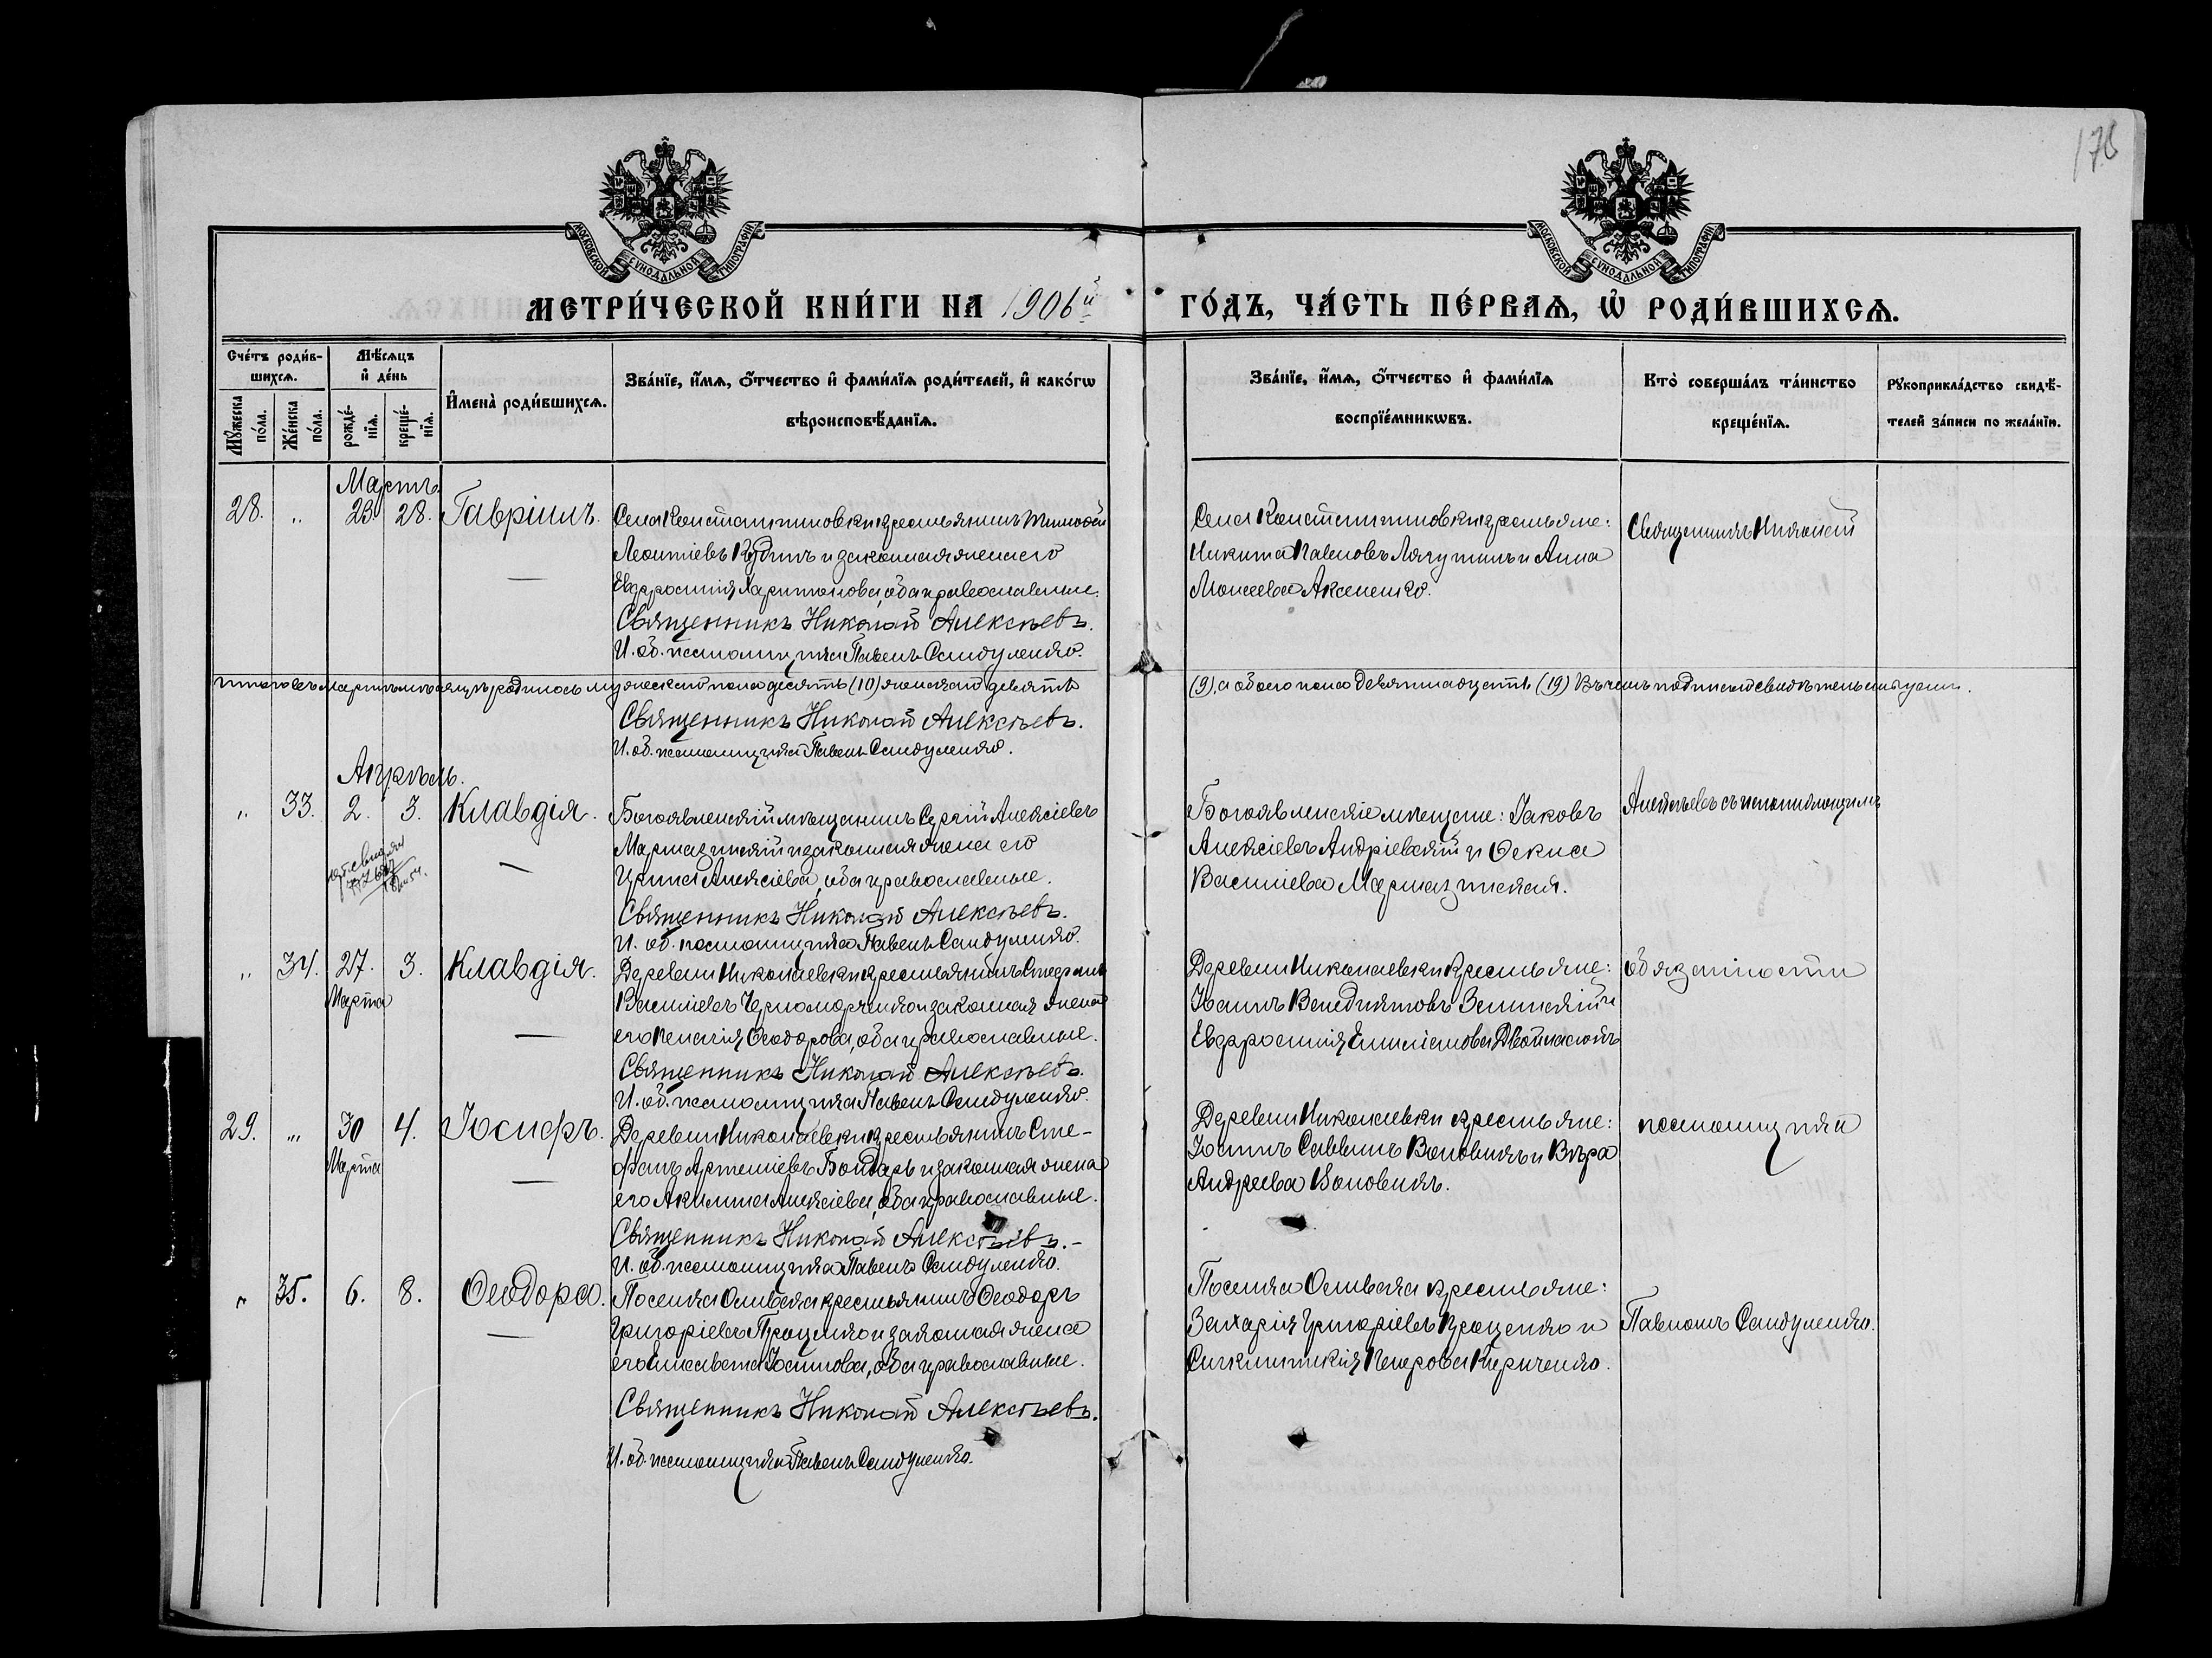 178
МОСКОВСКОЙ СУНОДАЛЬНОЙ ТИПОГРАФІИ
МОСКОВСКОЙ СУНОДАЛЬНОЙ ТИПОГРАФІИ
МЕТРИ́ЧЕСКОЙ КНИ́ГИ НА 1906й ГО́ДЪ, ЧА́СТЬ ПЕ́РВАѦ, Ѡ РОДИ́ВШИХСѦ.
Сче́тъ роди́в-
шихсѧ.
Мѣ́сѧцъ
и де́нь
Мꙋ́жеска
по́ла.
Же́нска
по́ла.
рожде́-
нїѧ.
креще́-
нїѧ.
Имена̀ роди́вшихсѧ.
Зва́нїе, и́мѧ, ѻ́тчество и фами́лїѧ роди́телей, и како́гѡ
вѣроисповѣ́данїѧ.
Зва́нїе, и́мѧ, ѻ́тчество и фами́лїѧ
воспрїе́мникѡвъ.
Кто̀ соверша́лъ та́инство
креще́нїѧ.
Рꙋкоприкла́дство свидѣ́-
телей за́писи по жела́нїю.
Мартъ
28. " 23. 28. Гавріилъ.
Села Константиновки крестьянинъ Тимофей
Леонтіевъ Кудинъ и законная жена его
Евфросинія Харитонова, оба православные.
Священникъ Николай Алексѣевъ.
И. об. псаломщика Павелъ Сандуленко.
Села Константиновки крестьяне:
Никита Павловъ Лагутинъ и Анна
Моисеева Аксененко.
Священникъ Николай
Итого въ мартѣ мѣсяцѣ родилось мужескаго пола десять (10) женскаго девять
(9), а обоего пола девятнадцать (19) Въ чемъ подписью свидѣтельствуемъ.
Священникъ Николай Алексѣевъ.
И. об. псаломщика Павелъ Сандуленко.
Апрѣль.
" 33. 2. 3. Клавдія.
Богоявленскій мѣщанинъ Сергій Алексіевъ
и законная жена его
Ирина Алексіева, оба православные.
Священникъ Николай Алексѣевъ.
И. об. псаломщика Павелъ Сандуленко.
Богоявленскіе мѣщане: Іаковъ
Алексіевъ Андріевскій и Ѳекла
Василіева
Алексѣевъ съ исполняющимъ
" 34. 27. 3. Клавдія.
Марта
Деревни Николаевки крестьянинъ Стефанъ
Василіевъ Черноморченко и законная жена
его Пелагія Ѳеодорова, оба православные.
Священникъ Николай Алексѣевъ.
И. об. псаломщика Павелъ Сандуленко.
Деревни Николаевки крестьяне:
Іоаннъ Венедиктовъ Зелинскій и
Евфросинія
обязанности
29. " 30 4. Іосифъ.
Марта
Деревни Николаевки крестьянинъ Сте-
фанъ Артеміевъ Бондарь и законная жена
его Акилина Алексіева, оба православные.
Священникъ Николай Алексѣевъ.
И. об. псаломщика Павелъ Сандуленко.
Деревни Николаевки крестьяне:
Іоаннъ Саввинъ Воловикъ и Вѣра
Андреева Воловикъ.
псаломщика
" 35. 6. 8. Ѳеодора.
Поселка Ольвска крестьянинъ Ѳеодоръ
Григоріевъ Проценко и законная жена
его Елисавета Іоаннова, оба православные.
Священникъ Николай Алексѣевъ.
И. об. псаломщика Павелъ Сандуленко.
Поселка Ольвска крестьяне:
Захарія Григоріевъ Проценко и
Сигклитикія Петрова Кириченко.
Павломъ Сандуленко.